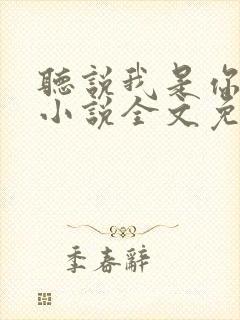 聽說我是你
小說全文免
季春辭